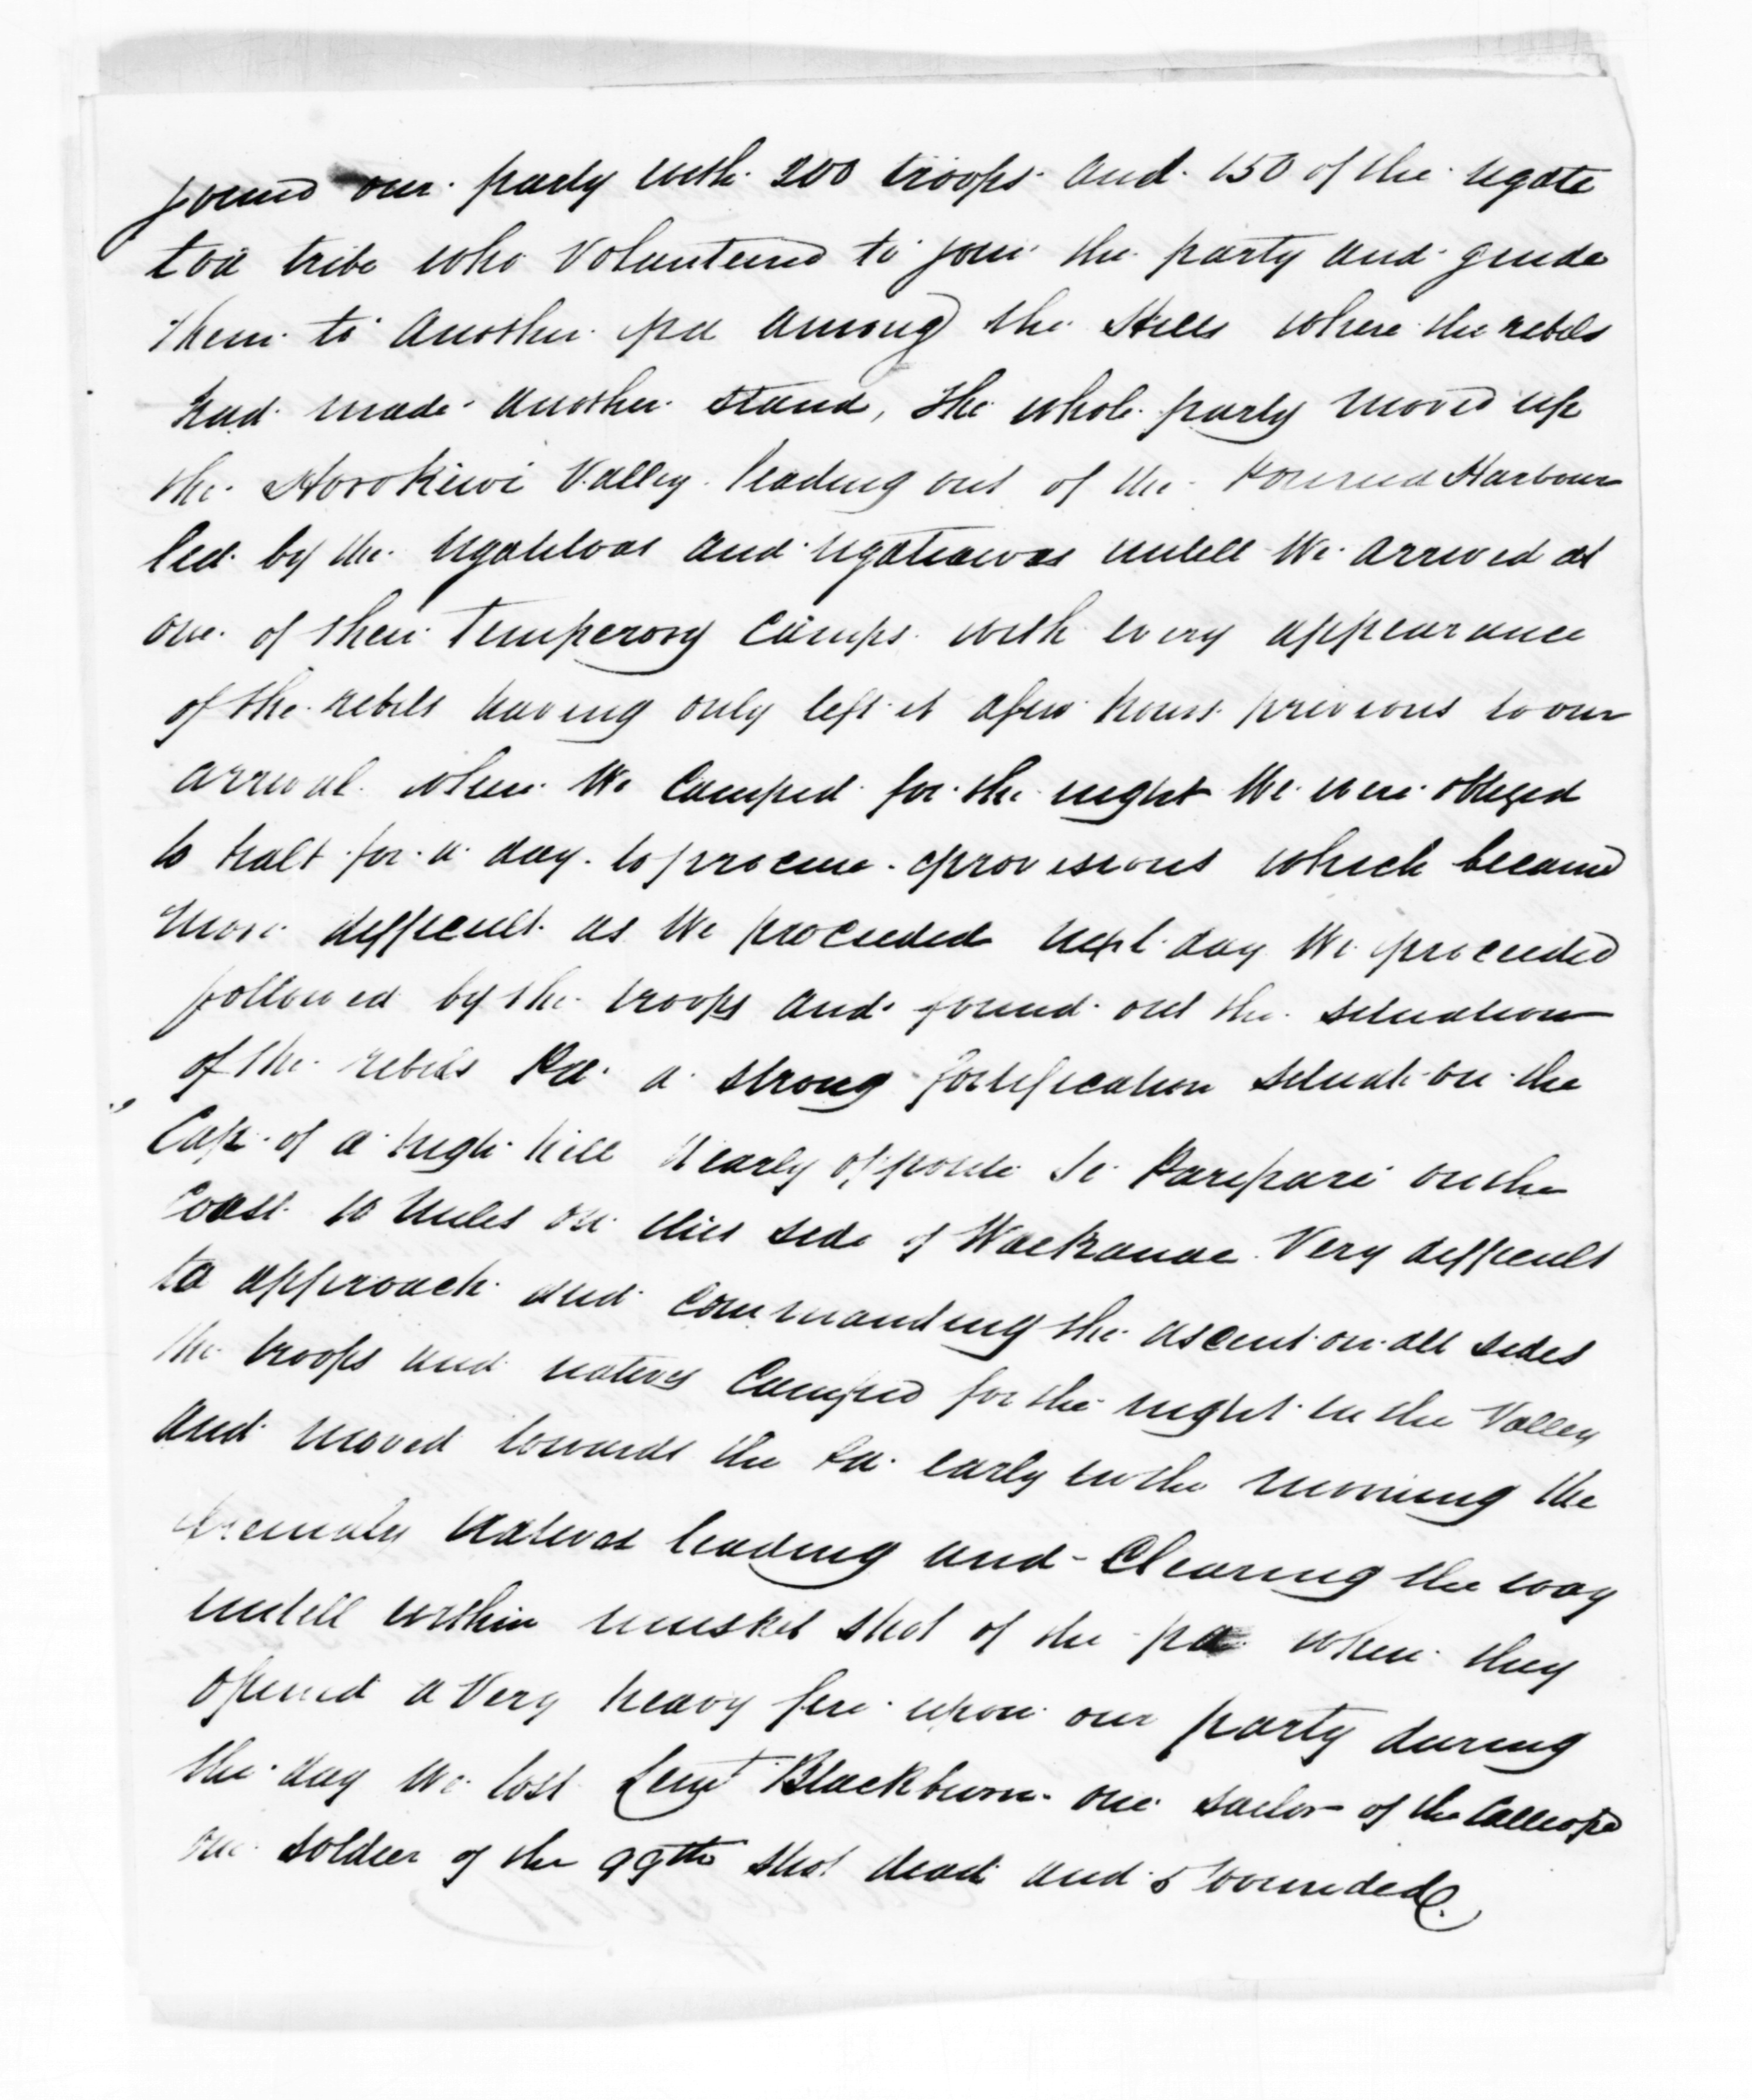 joined our party with 200 troops and 150 of the ngate
toa tribe who Volunteered to join the party and guide
them to another pa among the Hills where the rebels
had made another stand, the whole party moved up
the Horokiwi Valley leading out of the Porirua Harbour
led by the Ngatitoas and Ngatiawas untill we arrived at
one of their Temperory Camps with every appearance
of the rebels having only left it afew hours previous to our
arrival when We Camped for the night We were obliged
to halt for a day to procure provisions which became
more difficult as We proceeded next day We proceeded
followed by the troops and found out the situation
of the rebels Pa a strong fortification situate on the
Cap of a high hill Nearly opposite to Paripari on the
Coast 10 Miles on this side of Waikanae Very difficult
to approach and commanding the ascent on all sides
the troops and natives Camped for the night in the Valley
and moved towards the Pa early in the morning the
natives leading and Clearing the way
untill within musket shot of the pa when they
opened a Very heavy fire upon our party during
the day We lost Leut Blackburn one sailor of the Calliope
one soldier of the 99th shot dead and 5 wounded.